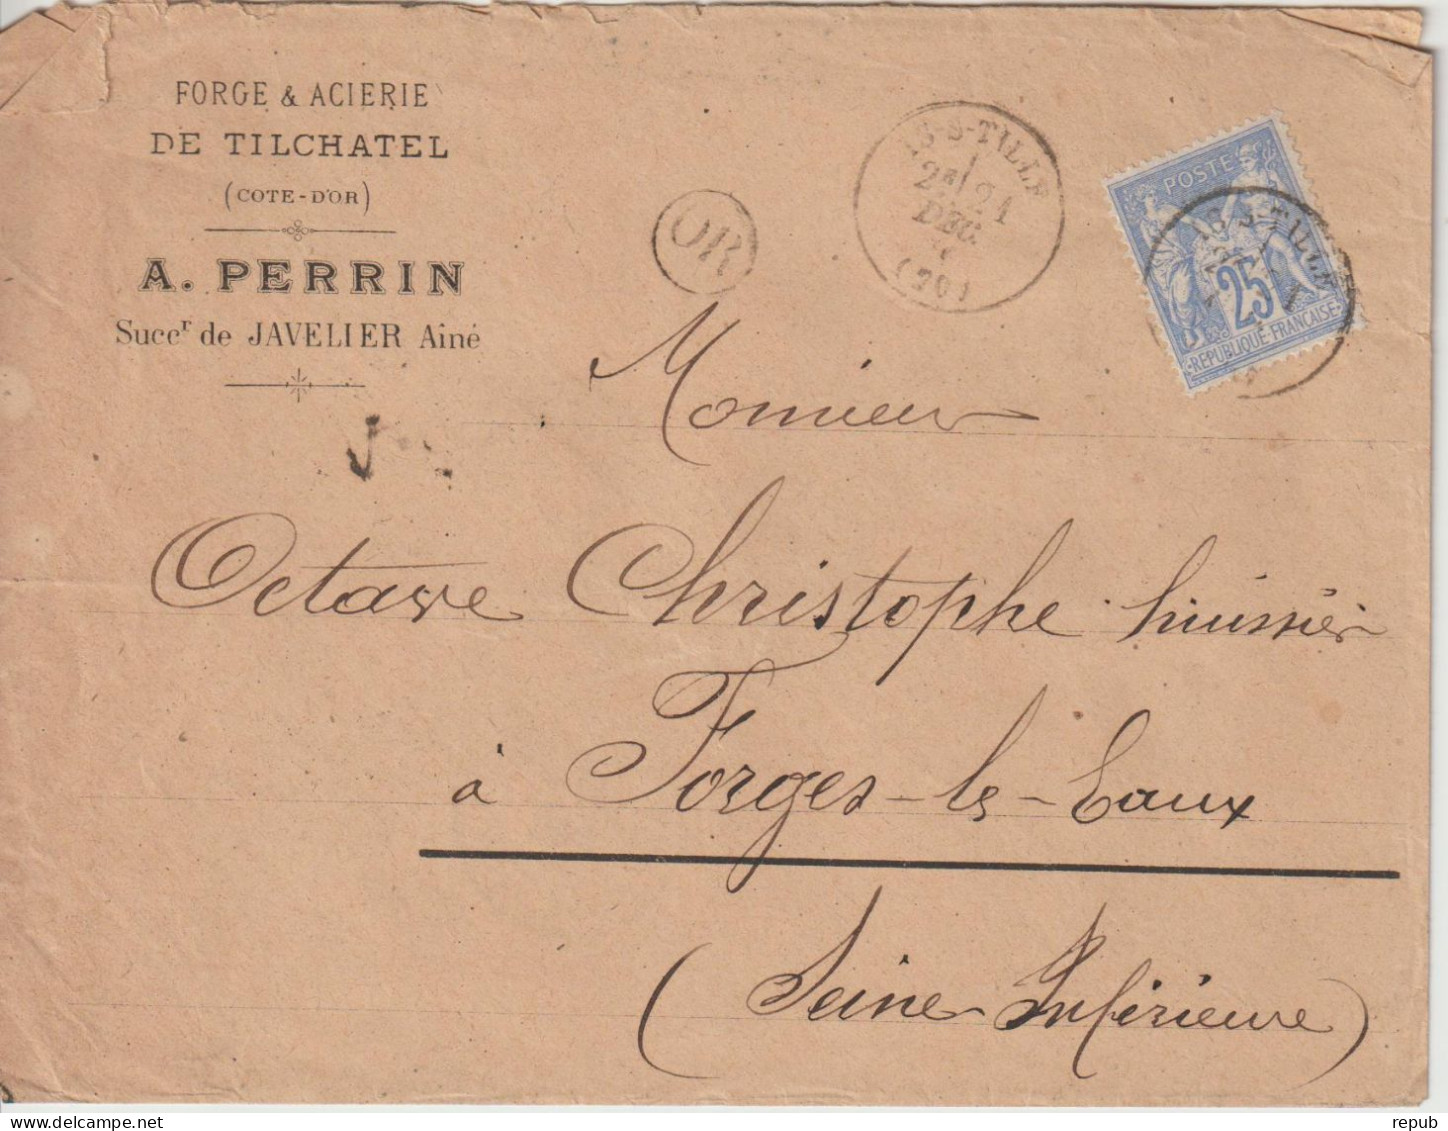 FORGE & ACIERIE
DE TILCHATEL
(COTE-D'OR)
A. PERRIN
Succr de JAVELIER Ainé
OR
IS-S-TILLE
2E 21
DEC.
(20)
POSTE
25
REPUBLIQUE FRANÇAISE
IS-S-TILLE
Monsieur
Octave Christophe huissier
à Forges-les-Eaux
(Seine-Inférieure)
repub